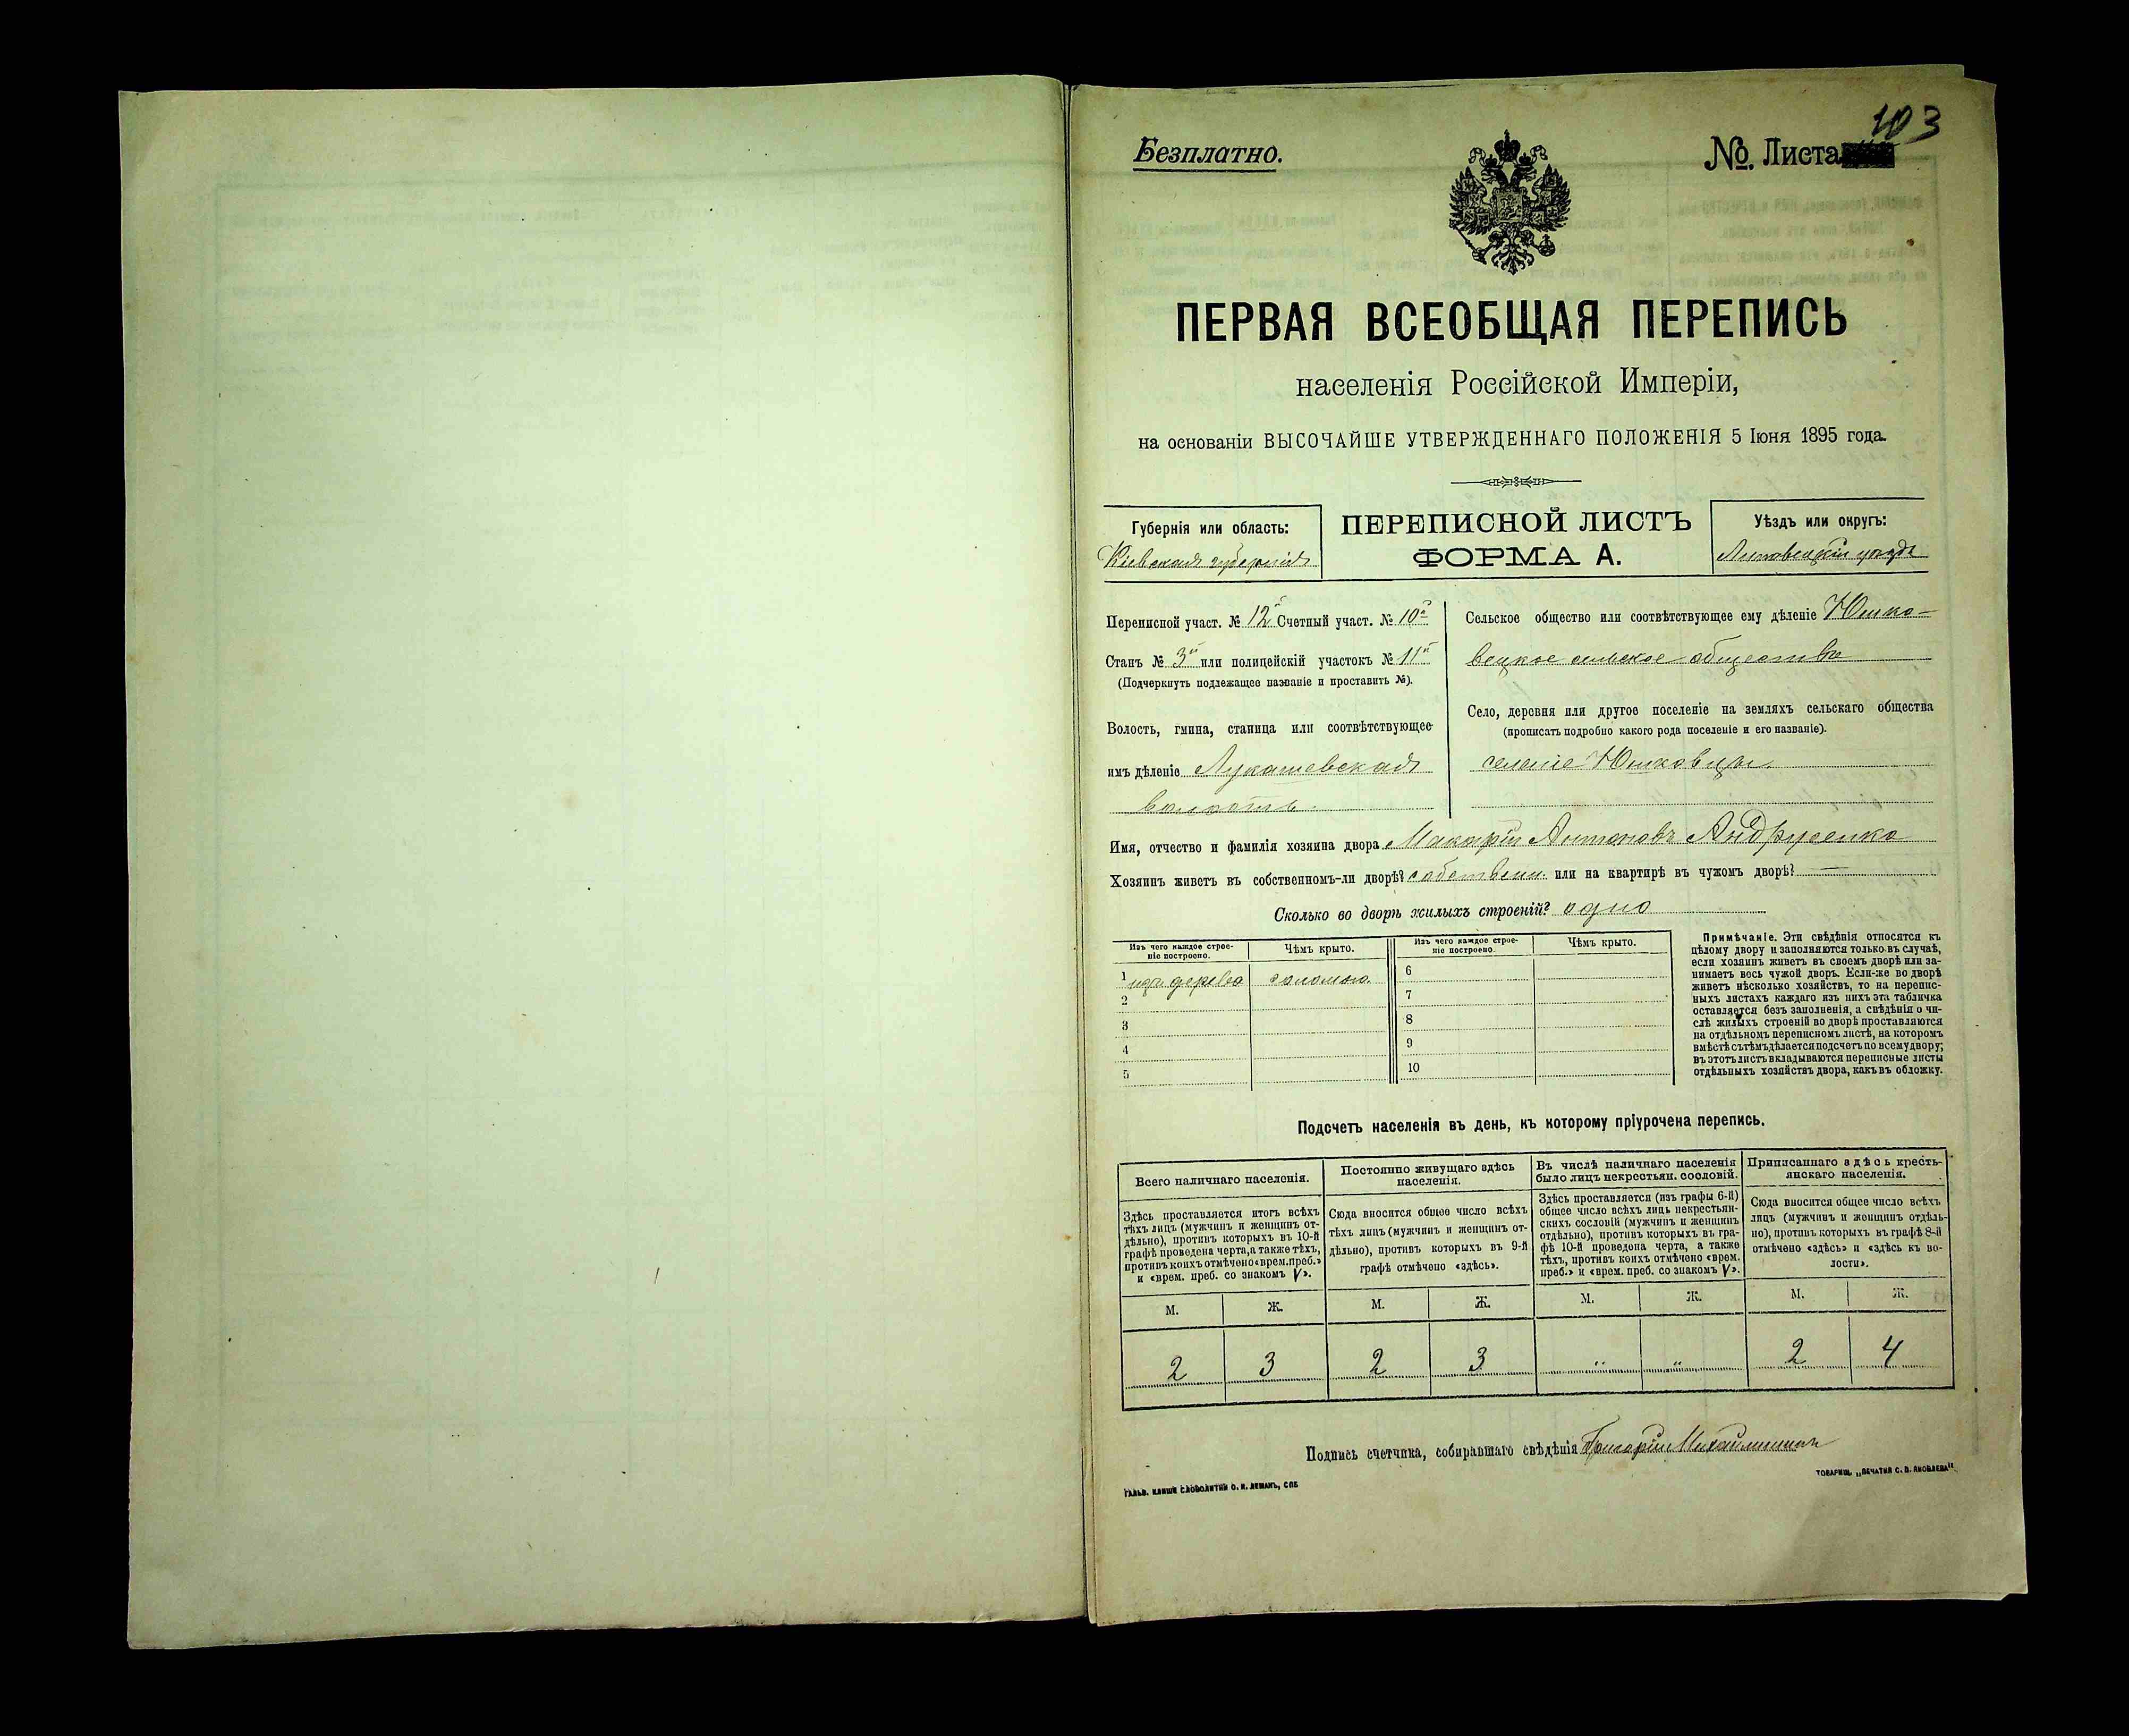 403
Безплатно.
№. Листа
ПЕРВАЯ ВСЕОБЩАЯ ПЕРЕПИСЬ
населенія Россійской Имперіи,
на основаніи ВЫСОЧАЙШЕ УТВЕРЖДЕННАГО ПОЛОЖЕНІЯ 5 Іюня 1895 года.
Губернія или область:
Кіевская губернія
ПЕРЕПИСНОЙ ЛИСТЪ
ФОРМА А.
Уѣздъ или округъ:
Липовецкій уездъ
Переписной участ. № 12й Счетный участ. № 10й
Станъ № 3й или полицейскій участокъ № 11й
(Подчеркнуть подлежащее названіе и проставить №).
Волость, гмина, станица или соотвѣтствующее
имъ дѣленіе Лукашевская
волость.
Сельское общество или соотвѣтствующее ему дѣленіе Юшко-
вецкое сельское общество
Село, деревня или другое поселеніе на земляхъ сельскаго общества
(прописать подробно какого рода поселеніе и его названіе).
селеніе Юшковцы.
Имя, отчество и фамилія хозяина двора Макарій Антоновъ Андрусенко
Хозяинъ живетъ въ собственномъ-ли дворѣ? собственн. или на квартирѣ въ чужомъ дворѣ? —
Сколько во дворѣ жилыхъ строеній? одно
Изъ чего каждое строе-
ніе построено.
Чѣмъ крыто.
Изъ чего каждое строе-
ніе построено.
Чѣмъ крыто.
1 изъ дерева соломою.
2
3
4
5
6
7
8
9
10
Примѣчаніе. Эти свѣдѣнія относятся къ
цѣлому двору и заполняются только въ случаѣ,
если хозяинъ живетъ въ своемъ дворѣ или за-
нимаетъ весь чужой дворъ. Если-же во дворѣ
живетъ нѣсколько хозяйствъ, то на перепис-
ныхъ листахъ каждаго изъ нихъ эта табличка
оставляется безъ заполненія, а свѣдѣнія о чи-
слѣ жилыхъ строеній во дворѣ проставляются
на отдѣльномъ переписномъ листѣ, на которомъ
вмѣстѣ съ тѣмъ дѣлается подсчетъ по всему двору;
въ этотъ листъ вкладываются переписные листы
отдѣльныхъ хозяйствъ двора, какъ въ обложку.
Подсчетъ населенія въ день, къ которому пріурочена перепись.
Всего наличнаго населенія.
Здѣсь проставляется итогъ всѣхъ
тѣхъ лицъ (мужчинъ и женщинъ от-
дѣльно), противъ которыхъ въ 10-й
графѣ проведена черта, а также тѣхъ,
противъ коихъ отмѣчено «врем. преб.»
и «врем. преб. со знакомъ V».
Постоянно живущаго здѣсь
населенія.
Сюда вносится общее число всѣхъ
тѣхъ лицъ (мужчинъ и женщинъ от-
дѣльно), противъ которыхъ въ 9-й
графѣ отмѣчено «здѣсь».
Въ числѣ наличнаго населенія
было лицъ некрестьян. сословій.
Здѣсь проставляется (изъ графы 6-й)
общее число всѣхъ лицъ некрестьян-
скихъ сословій (мужчинъ и женщинъ
отдѣльно), противъ которыхъ въ гра-
фѣ 10-й проведена черта, а также
тѣхъ, противъ коихъ отмѣчено «врем.
преб.» и «врем. преб. со знакомъ V».
Приписаннаго здѣсь кресть-
янскаго населенія.
Сюда вносится общее число всѣхъ
лицъ (мужчинъ и женщинъ отдѣль-
но), противъ которыхъ въ графѣ 8-й
отмѣчено «здѣсь» и «здѣсь къ во-
лости».
М. Ж. М. Ж. М. Ж. М. Ж.
2 3 2 3 " " 2 4
Подпись счетчика, собиравшаго свѣдѣнія Григорій
ГАЛЬВ. КЛИШЕ СЛОВОЛИТНИ О. И. ЛЕМАНЪ, СПБ.
ТОВАРИЩ. „ПЕЧАТНЯ С. П. ЯКОВЛЕВА“.